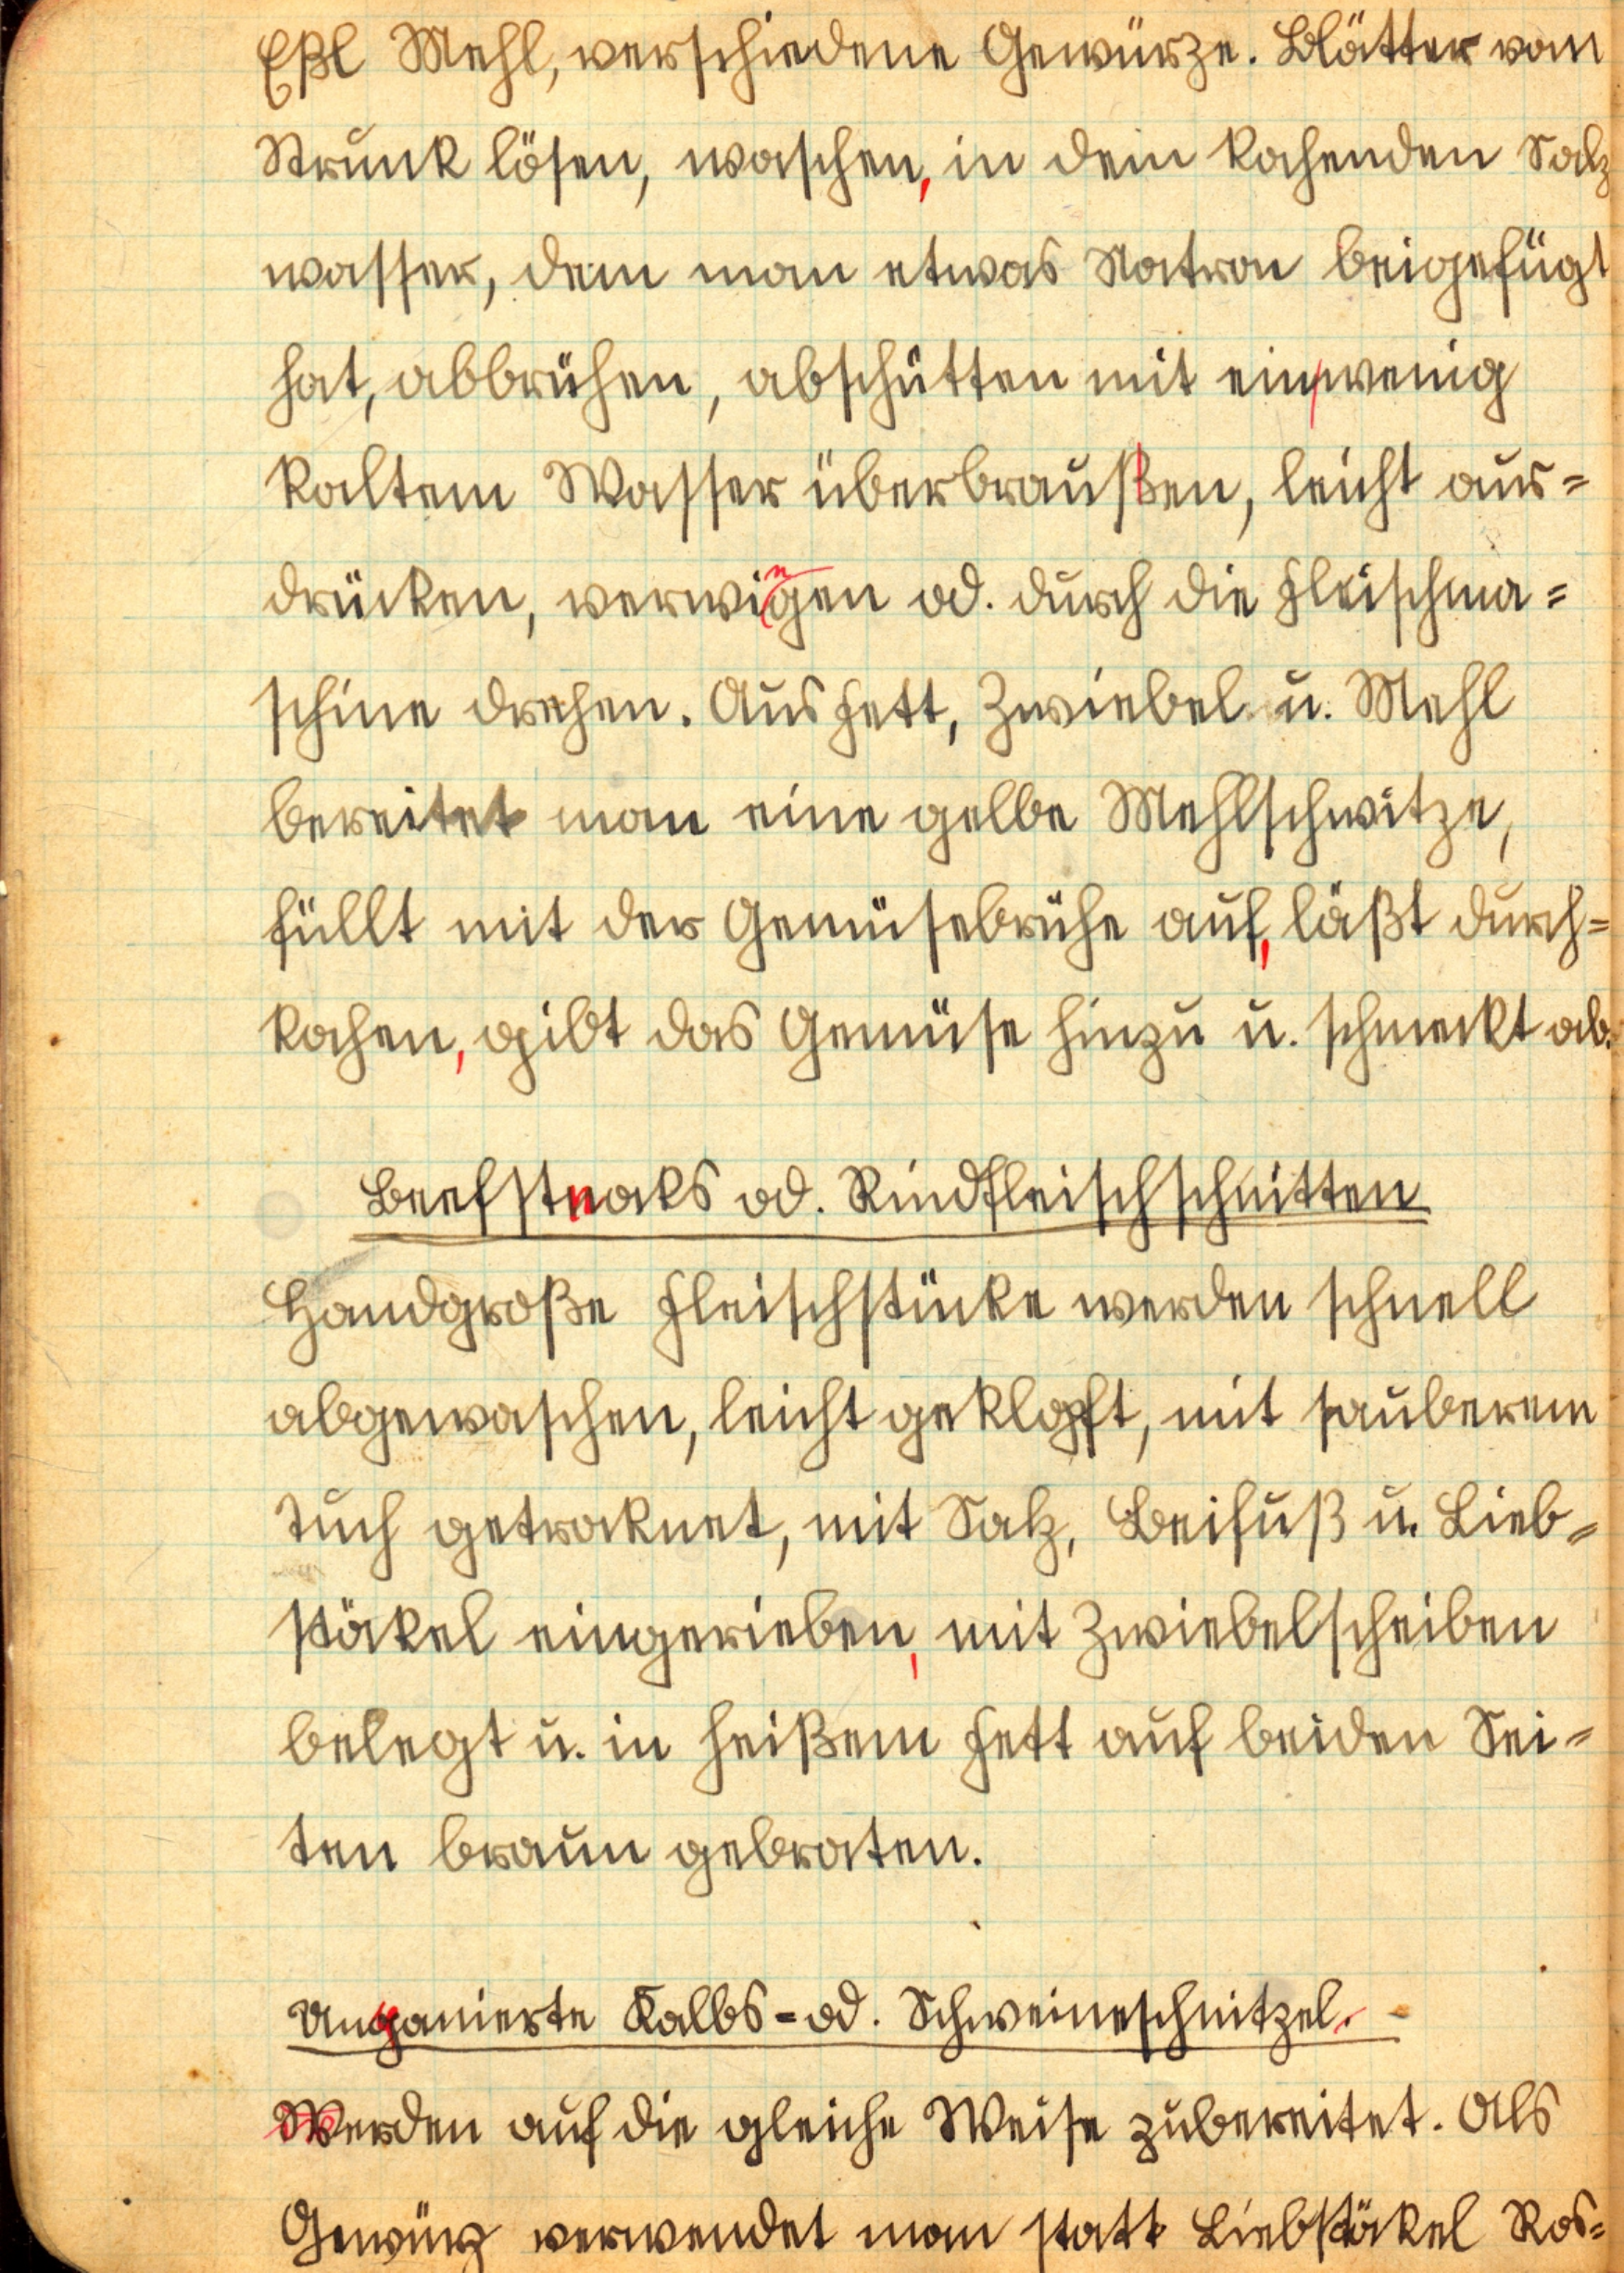 Eßl Mehl, verschiedene Gewürze. Blätter vom
Strunk lösen, waschen, in dem kochenden Salz
wasser, dem man etwas Natron beigefügt
hat, abbrühen, abschütten mit ein wenig
kaltem Wasser überbraußen, leicht aus=
drücken, verwigen od. durch die Fleischma=
schine drehen. Aus Fett, Zwiebel u. Mehl
bereitet man eine gelbe Mehlschwitze,
füllt mit der Gemüsebrühe auf, läßt durch=
kochen, gibt das Gemüse hinzu u. schmeckt ab.
Beefsteaks od. Rindfleischschnitten
Handgroße Fleischstücke werden schnell
abgewaschen, leicht geklopft, mit sauberem
Tuch getrocknet, mit Salz, Beifuß u. Lieb=
stöckel eingerieben, mit Zwiebelscheiben
belegt u. in heißem Fett auf beiden Sei=
ten braun gebraten.
Unpanierte Kalbs= od. Schweineschnitzel.
Werden auf die gleiche Weise zubereitet. Als
Gewürz verwendet man statt Liebstöckel Ros=